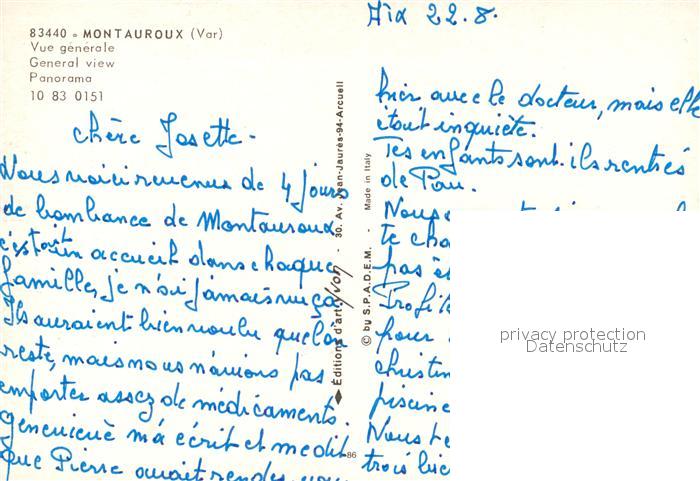 83440 - MONTAUROUX (Var)
Vue générale
General view
Panorama
10 83 0151
chère Josette -
Nous voici revenus de 4 jours
de bombance de Montauroux
c'était un accueil dans chaque
famille, je n'ai jamais vu ça
Ils auraient bien voulu qu'on
reste, mais nous n'avions pas
emportes assez de médicaments.
Genevieve m'a écrit et me dit
que Pierre avait rendez vous
Editions d'art Yvon - 30, Av. Jean-Jaurès-94-Arcueil
© by S.P.A.D.E.M. - Made in Italy
86
Aix 22.8.
hier avec le docteur, mais elle
était inquiète.
Tes enfants sont-ils rentrés
de Pau.
Nous
te
pas
Profite
pour
christin
piscine
Nous te
trois
privacy protection
Datenschutz